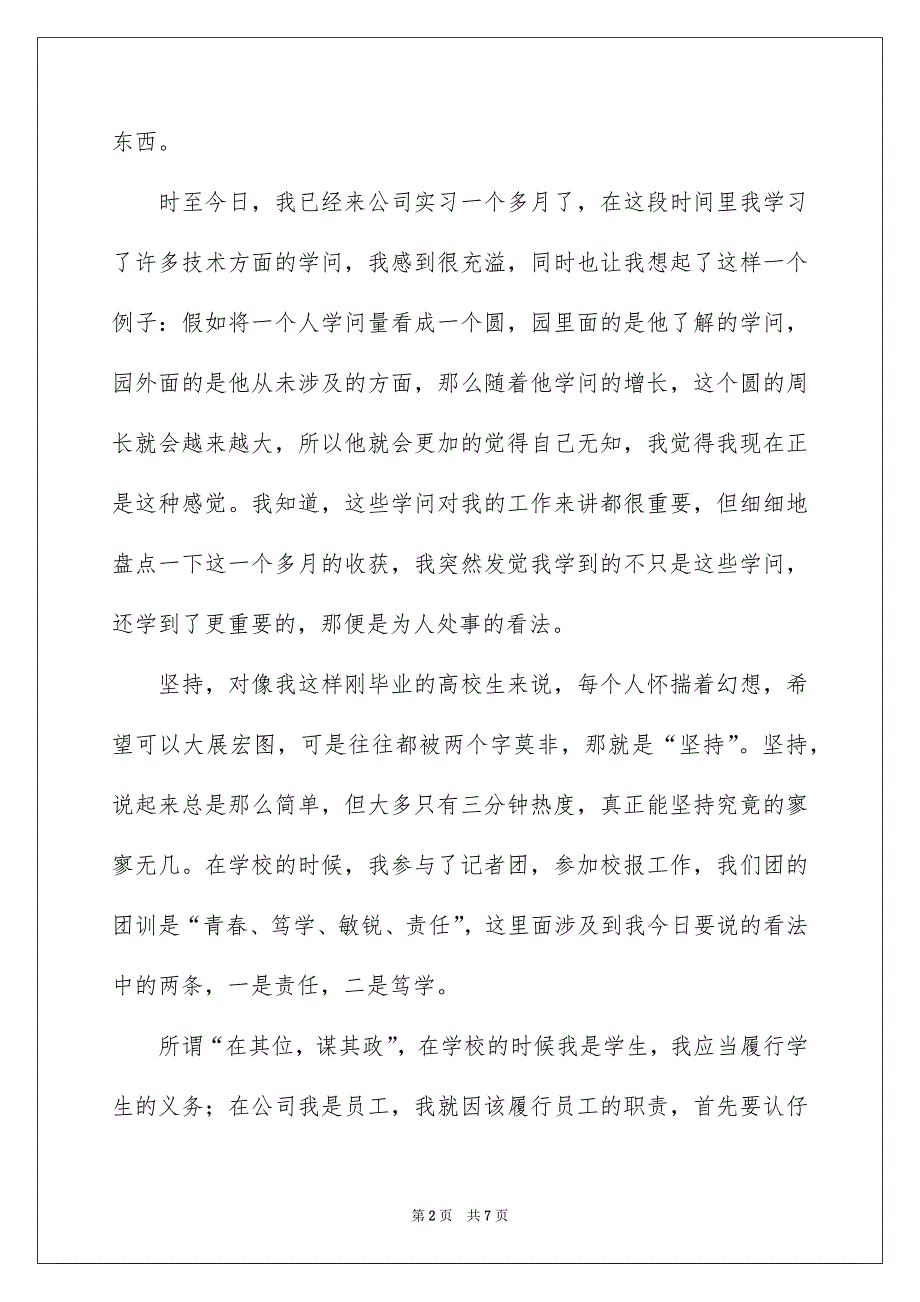 东西。
时至今日，我已经来公司实习一个多月了，在这段时间里我学习
了许多技术方面的学问，我感到很充溢，同时也让我想起了这样一个
例子：假如将一个人学问量看成一个圆，园里面的是他了解的学问，
园外面的是他从未涉及的方面，那么随着他学问的增长，这个圆的周
长就会越来越大，所以他就会更加的觉得自己无知，我觉得我现在正
是这种感觉。我知道，这些学问对我的工作来讲都很重要，但细细地
盘点一下这一个多月的收获，我突然发觉我学到的不只是这些学问，
还学到了更重要的，那便是为人处事的看法。
坚持，对像我这样刚毕业的高校生来说，每个人怀揣着幻想，希
望可以大展宏图，可是往往都被两个字莫非，那就是“坚持”。坚持，
说起来总是那么简单，但大多只有三分钟热度，真正能坚持究竟的寥
寥无几。在学校的时候，我参与了记者团，参加校报工作，我们团的
团训是“青春、笃学、敏锐、责任”，这里面涉及到我今日要说的看法
中的两条，一是责任，二是笃学。
所谓“在其位，谋其政”，在学校的时候我是学生，我应当履行学
生的义务；在公司我是员工，我就因该履行员工的职责，首先要认仔
第 2 页 共 7 页